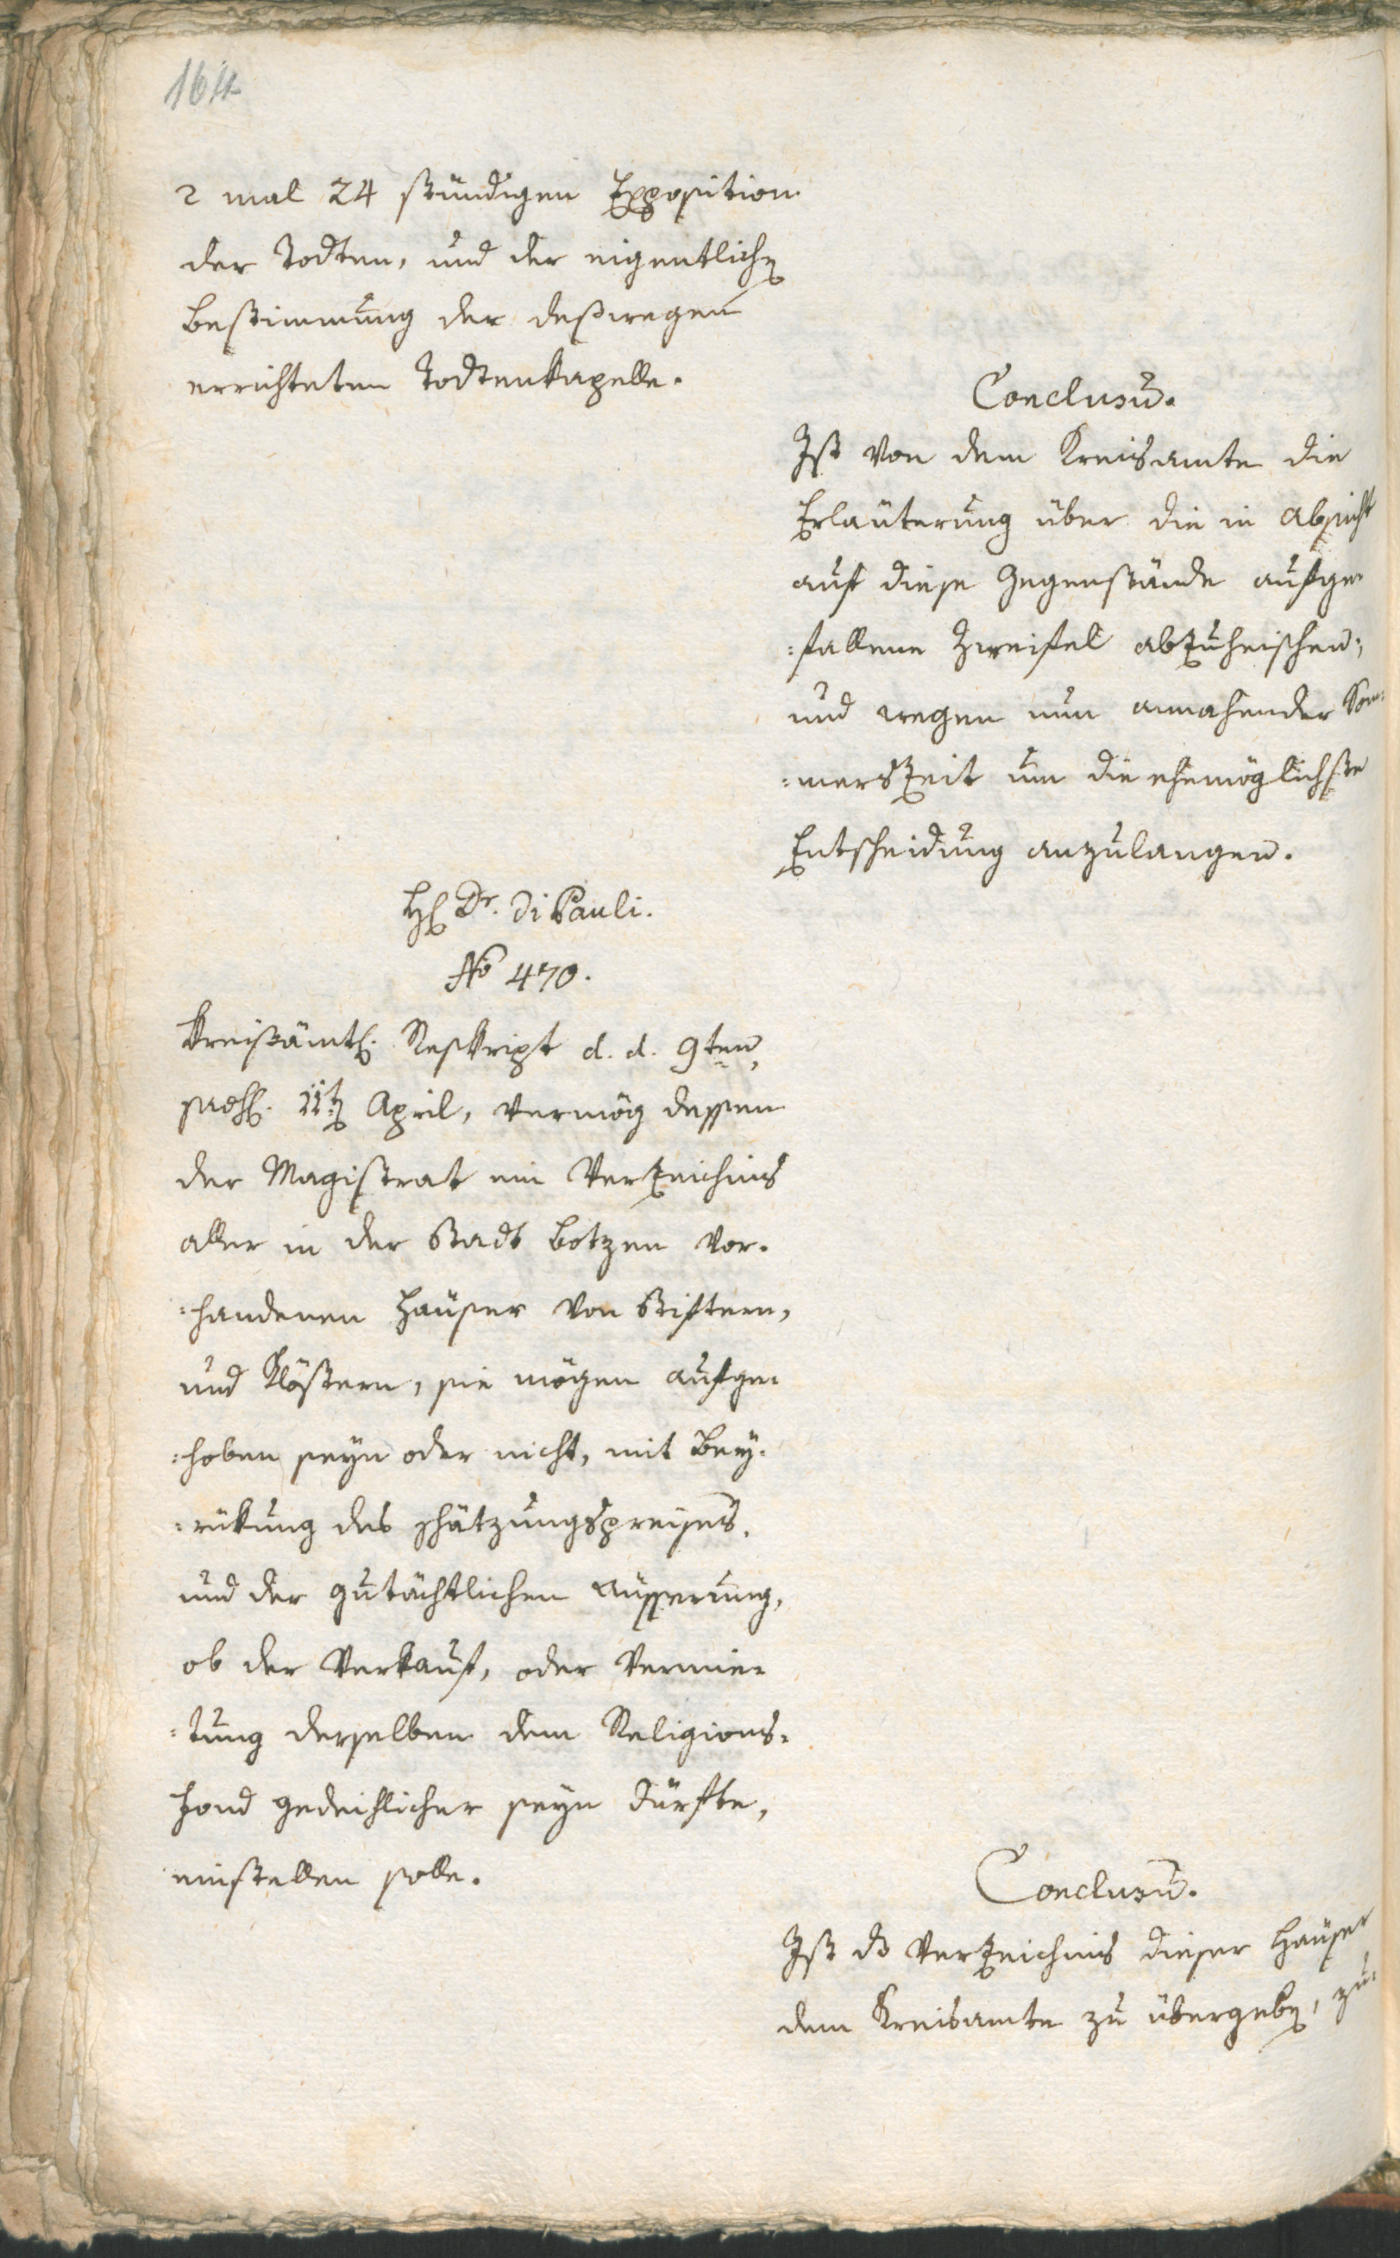 164
2 mal 24 stündigen Exposition
der Todten, und der eigentlichen
Bestimmung der deßwegen
errichteten Todtenkapelle.
Conclusum.
Ist von dem Kreisamte die
Erläuterung über die in Absicht
auf diese Gegenstände aufge-
:fallene Zweifel abzuheischen,
und wegen nun annahender Som-
:merszeit um die ehemöglichste
Entscheidung anzulangen.
H. Dr. Di Pauli.
No 470.
Kreisämtl. Reskript d. d. 9ten,
11t April, vermög dessen
der Magistrat ein Verzeichnis
aller in der Stadt Botzen vor-
:handenen Häuser von Stiftern,
und Klöstern, sie mögen aufge-
:hoben seyn oder nicht, mit Bey-
:rükung des Schätzungspreises,
und der gutächtlichen Äusserung,
ob der Verkauf, oder Vermie-
:tung derselben dem Religions-
Fond gedeihlicher seyn dürfte,
einstellen solle.
Conclusum.
Ist das Verzeichnis dieser Häuser
dem Kreisamte zu übergeben, zu-